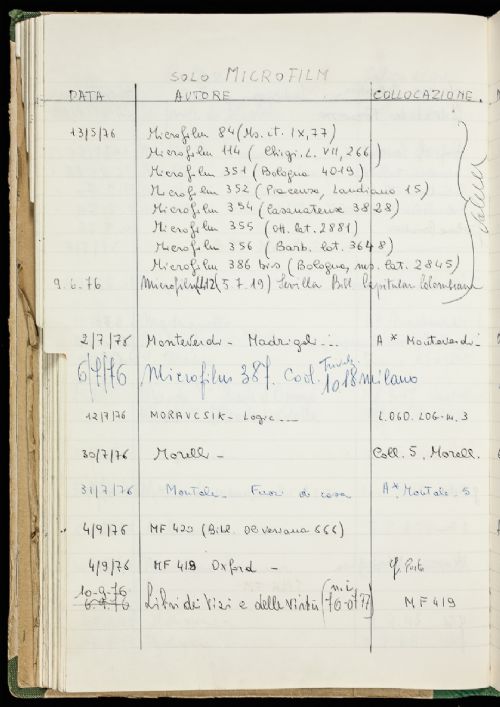 SOLO MICROFILM
DATA AUTORE COLLOCAZIONE.
13/5/76 Microfilm 84 (Ms. it. IX, 77)
Microfilm 114 ( Chigi. L. VII, 266
Microfilm 351 ( Bologna 4019)
Microfilm 352 ( Piacenza, Landiano 15)
Microfilm 354 ( Casanatense 3828)
Microfilm 355 ( Ott. lat. 2881)
Microfilm 356 ( Barb. lat. 3648)
Microfilm 386 bis ( Bologna, ms. lat. 2845)
9.6.76 Microfilm 412 (5 7. 19) Sevilla Bibl. Capitular Colombiana
2/7/76 Monteverdi - Madrigali ... A* Monteverdi
6/7/76 Microfilm 387. Cod. Trivulz. 1018 milano
12/7/76 MORAVCSIK - Logic ... L.OGD. LOG-m. 3
30/7/76 Morelli - Coll. 5. Morell.
31/7/76 Montale - Fuori di casa A*. Montale. 5
4/9/76 MF 420 (Bibl. 666)
4/9/76 MF 418 Oxford - cfr.
10-9-76
6-9-76 Libri dei Vizi e delle Virtù ( 76-0177) MF 419